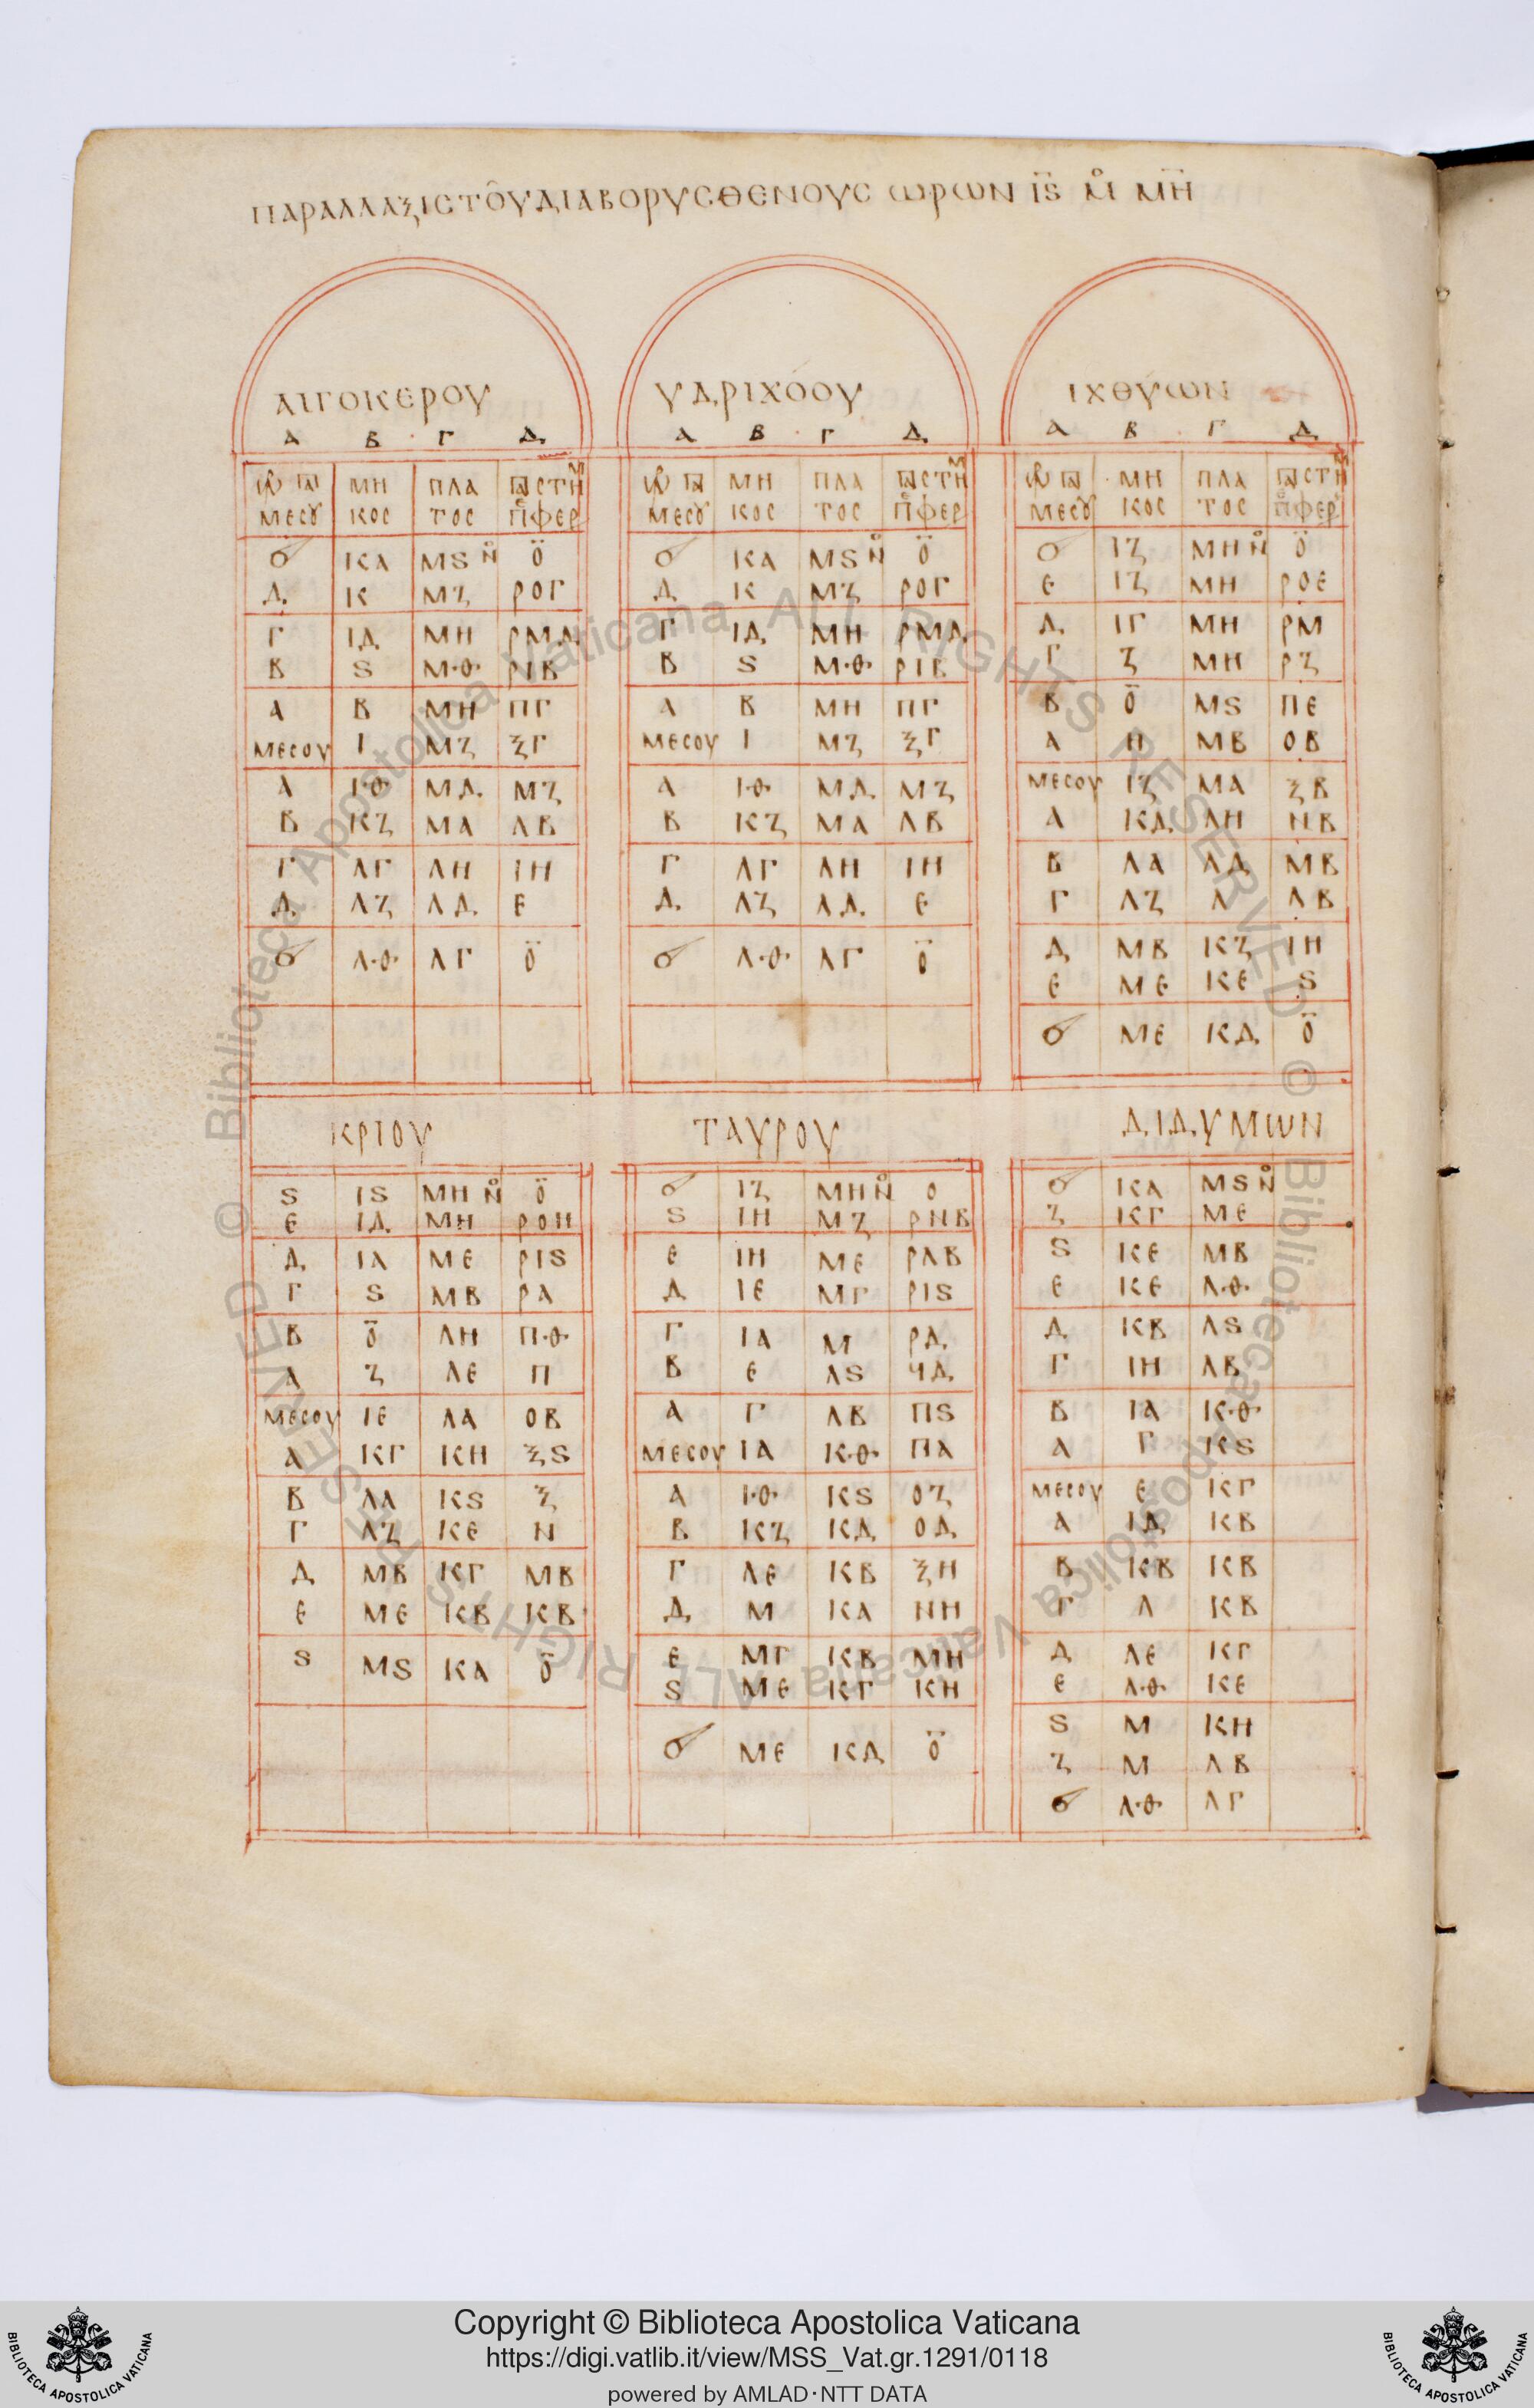 ΠΑΡΑΛΛΑΞΙC ΤΟΥ ΔΙΑ ΒΟΡΥCΘΕΝΟΥC ωΡωΝ ΙϚ Μ̊ ΜΗ
ΑΙΓΟΚΕΡΟΥ ΥΔΡΙΧΟΟΥ ΙΧΘΥωΝ
Α Β Γ Δ Α Β Γ Δ Α Β Γ Δ
ΜΗ ΠΛΑ ΜΗ ΠΛΑ ΜΗ ΠΛΑ
ΜΕCΟΥ ΚΟC ΤΟC ΜΕCΟΥ ΚΟC ΤΟC ΜΕCΟΥ ΚΟC ΤΟC
ΚΑ ΜϚ Ν̊ Ο̈ ΚΑ ΜϚ Ν̊ Ο̈ ΙΖ ΜΗ Ν̊ Ο̈
Δ Κ ΜΖ ΡΟΓ Δ Κ ΜΖ ΡΟΓ Ε ΙΖ ΜΗ ΡΟΕ
Γ ΙΔ ΜΗ ΡΜΔ Γ ΙΔ ΜΗ ΡΜΔ Δ ΙΓ ΜΗ ΡΜ
Β Ϛ ΜΘ ΡΙΒ Β Ϛ ΜΘ ΡΙΒ Γ Ζ ΜΗ ΡΖ
Α Β ΜΗ ΠΓ Α Β ΜΗ ΠΓ Β Ο̈ ΜϚ ΠΕ
ΜΕCΟΥ Ι ΜΖ ΞΓ ΜΕCΟΥ Ι ΜΖ ΞΓ Α Η ΜΒ ΟΒ
Α ΙΘ ΜΔ ΜΖ Α ΙΘ ΜΔ ΜΖ ΜΕCΟΥ ΙΖ ΜΑ ΞΒ
Β ΚΖ ΜΑ ΛΒ Β ΚΖ ΜΑ ΛΒ Α ΚΔ ΛΗ ΝΒ
Γ ΛΓ ΛΗ ΙΗ Γ ΛΓ ΛΗ ΙΗ Β ΛΑ ΛΔ ΜΒ
Δ ΛΖ ΛΔ Ε Δ ΛΖ ΛΔ Ε Γ ΛΖ Λ ΛΒ
ΛΘ ΛΓ Ο̈ ΛΘ ΛΓ Ο̈ Δ ΜΒ ΚΖ ΙΗ
Ε ΜΕ ΚΕ Ϛ
ΜΕ ΚΔ Ο̈
ΚΡΙΟΥ ΤΑΥΡΟΥ ΔΙΔΥΜωΝ
Ϛ ΙϚ ΜΗ Ν̊ Ο̈ ΙΖ ΜΗ Ν̊ Ο ΚΑ ΜϚ Ν̊
Ε ΙΔ ΜΗ ΡΟΗ Ϛ ΙΗ ΜΖ ΡΝΒ Ζ ΚΓ ΜΕ
Δ ΙΑ ΜΕ ΡΙϚ Ε ΙΗ ΜΕ ΡΛΒ Ϛ ΚΕ ΜΒ
Γ Ϛ ΜΒ ΡΑ Δ ΙΕ ΜΓ ΡΙϚ Ε ΚΕ ΛΘ
Β Ο̈ ΛΗ ΠΘ Γ ΙΑ Μ ΡΔ Δ ΚΒ ΛϚ
Α Ζ ΛΕ Π Β Ε ΛϚ ϤΔ Γ ΙΗ ΛΒ
ΜΕCΟΥ ΙΕ ΛΑ ΟΒ Α Γ ΛΒ ΠϚ Β ΙΑ ΚΘ
Α ΚΓ ΚΗ ΞϚ ΜΕCΟΥ ΙΑ ΚΘ ΠΑ Α Γ ΚϚ
Β ΛΑ ΚϚ Ξ Α ΙΘ ΚϚ ΟΖ ΜΕCΟΥ Ε ΚΓ
Γ ΛΖ ΚΕ Ν Β ΚΖ ΚΔ ΟΔ Α ΙΔ ΚΒ
Δ ΜΒ ΚΓ ΜΒ Γ ΛΕ ΚΒ ΞΗ Β ΚΒ ΚΒ
Ε ΜΕ ΚΒ ΚΒ Δ Μ ΚΑ ΝΗ Γ Λ ΚΒ
Ϛ ΜϚ ΚΑ Ο̈ Ε ΜΓ ΚΒ ΜΗ Δ ΛΕ ΚΓ
Ϛ ΜΕ ΚΓ ΚΗ Ε ΛΘ ΚΕ
ΜΕ ΚΔ Ο̈ Ϛ Μ ΚΗ
Ζ Μ ΛΒ
ΛΘ ΛΓ
© Biblioteca Apostolica Vaticana ALL RIGHTS RESERVED © Biblioteca Apostolica Vaticana ALL RIGHTS RESERVED
Copyright © Biblioteca Apostolica Vaticana
https://digi.vatlib.it/view/MSS_Vat.gr.1291/0118
powered by AMLAD·NTT DATA
BIBLIOTECA APOSTOLICA VATICANA
BIBLIOTECA APOSTOLICA VATICANA